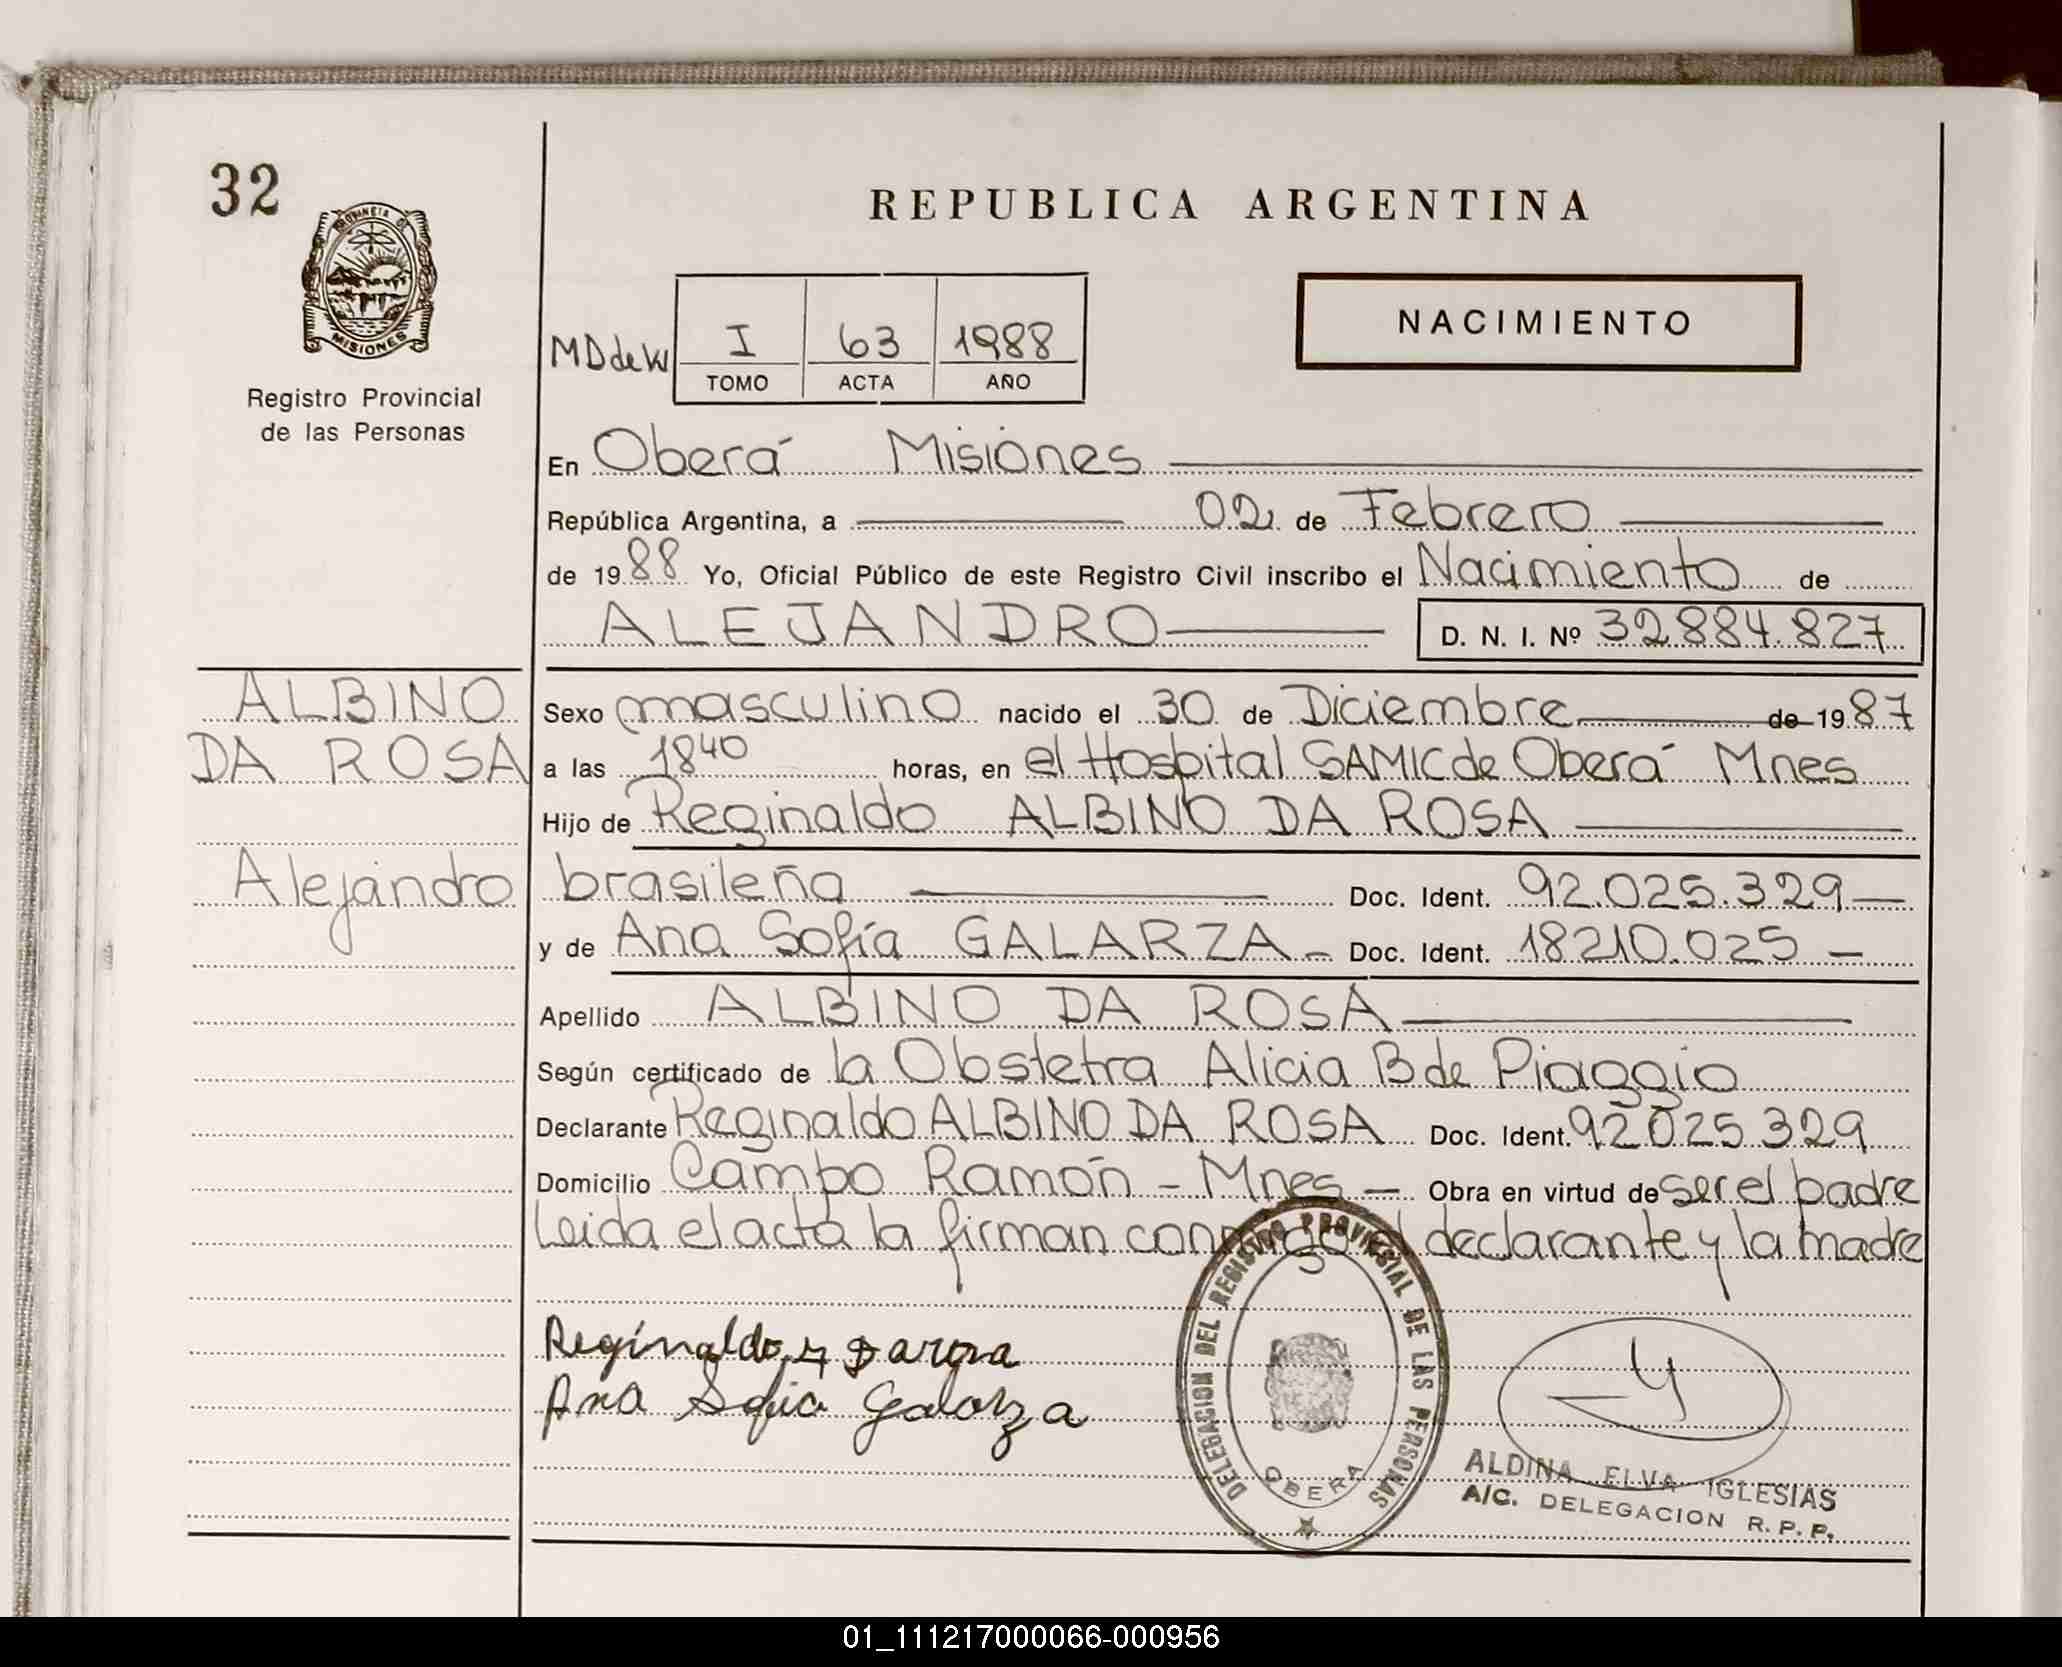 32
PROVINCIA DE
MISIONES
Registro Provincial
de las Personas
REPUBLICA ARGENTINA
NACIMIENTO
MD de W
I 63 1988
TOMO ACTA AÑO
En Oberá Misiones
República Argentina, a 02 de Febrero
de 1988 Yo, Oficial Público de este Registro Civil inscribo el Nacimiento de
ALEJANDRO D. N. I. Nº 32.884.827
ALBINO
DA ROSA
Alejandro
Sexo masculino nacido el 30 de Diciembre de 1987
a las 18 40 horas, en el Hospital SAMIC de Oberá Mnes
Hijo de Reginaldo ALBINO DA ROSA
brasileña Doc. Ident. 92.025.329
y de Ana Sofía GALARZA Doc. Ident. 18210.025
Apellido ALBINO DA ROSA
Según certificado de la Obstetra Alicia B de Piaggio
Declarante Reginaldo ALBINO DA ROSA Doc. Ident. 92025329
Domicilio Campo Ramón - Mnes - Obra en virtud de ser el padre
Leida el acta la firman conmigo el declarante y la madre
Reginaldo
Ana Sofia Galarza
DELEGACION DEL REGISTRO PROVINCIAL DE LAS PERSONAS
OBERA
ALDINA ELVA IGLESIAS
A/C. DELEGACION R. P. P.
01_111217000066-000956